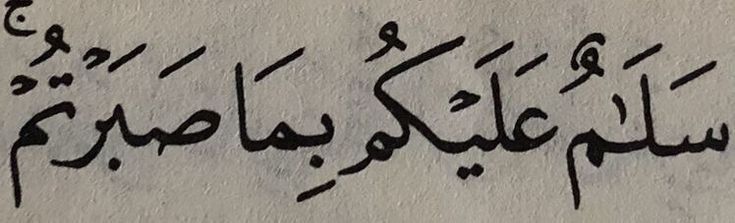 سَلَـٰمٌ عَلَيْكُم بِمَا صَبَرْتُمْ ۚ